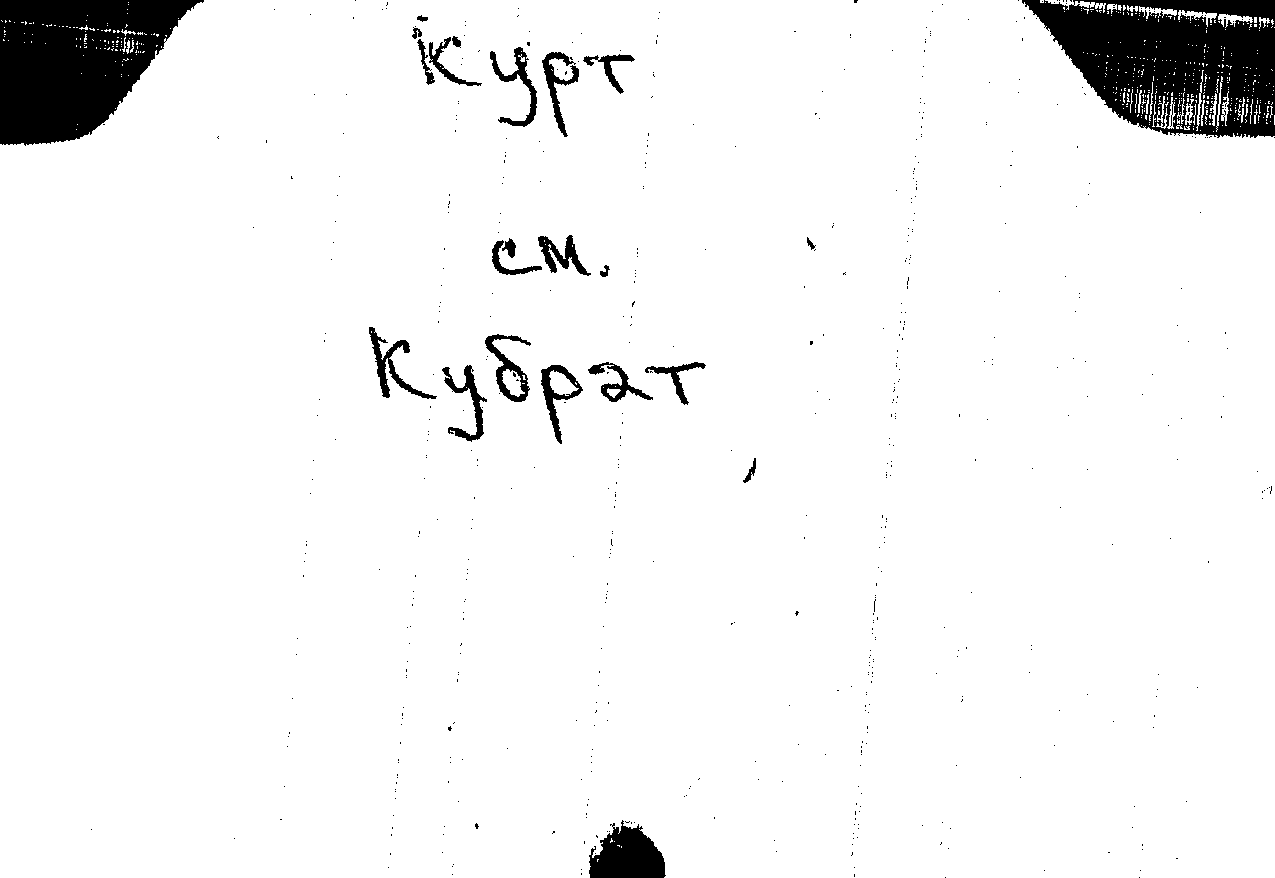 Курт
см.
Кубрат